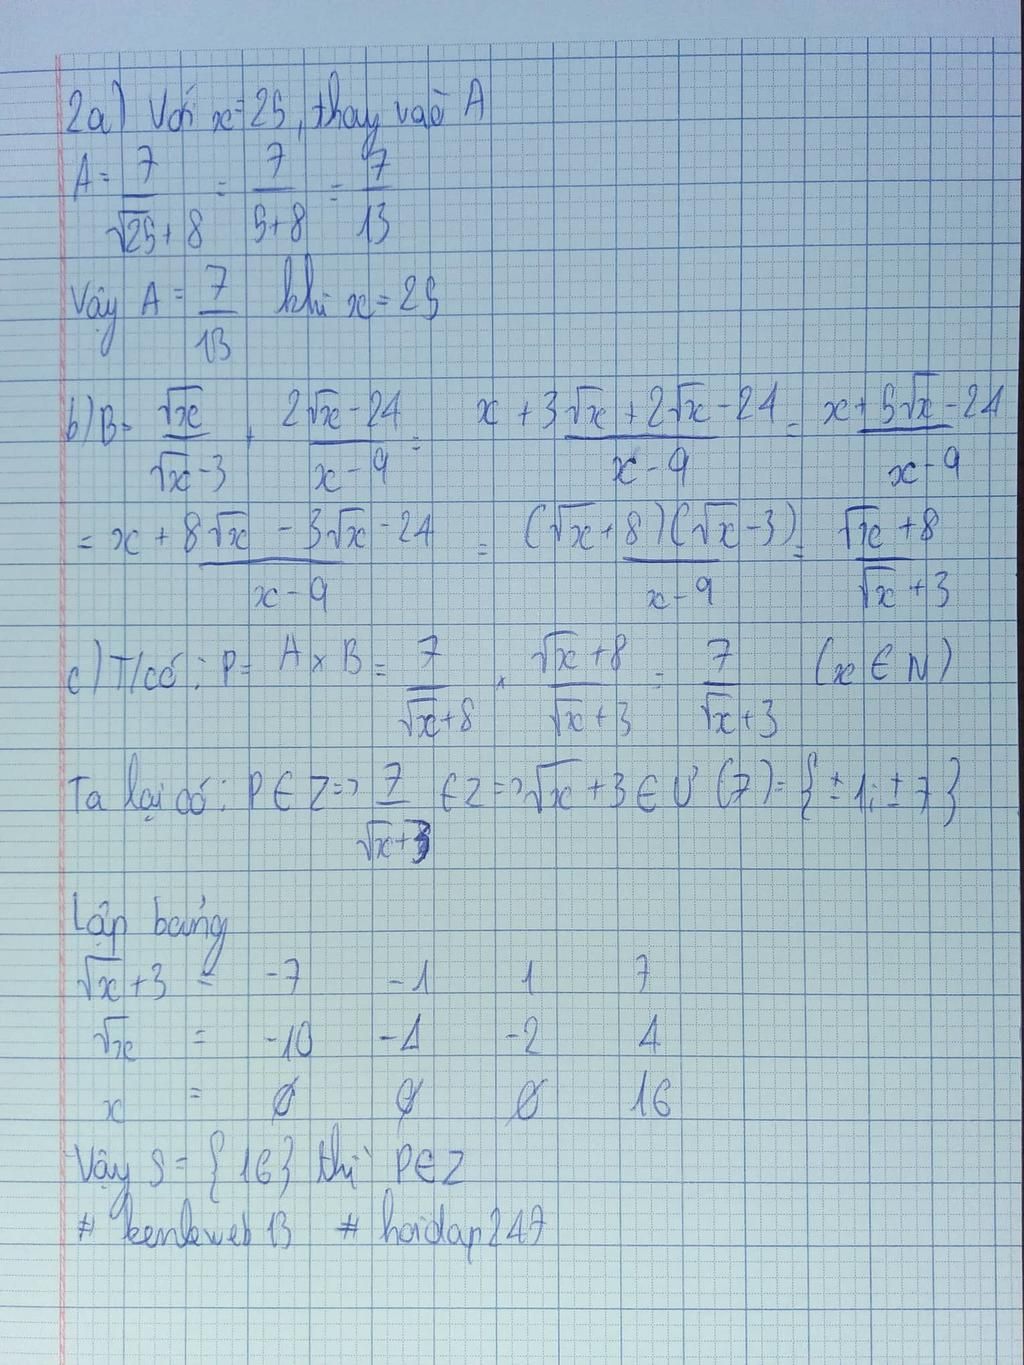 2a) Với x=25, thay vào A
A = 7/(√25+8) = 7/(5+8) = 7/13
Vậy A = 7/13 khi x = 25
b) B = √x/(√x-3) + (2√x-24)/(x-9) = (x+3√x+2√x-24)/(x-9) = (x+5√x-24)/(x-9)
= (x+8√x-3√x-24)/(x-9) = (√x+8)(√x-3)/(x-9) = (√x+8)/(√x+3)
c) T/có: P = A × B = 7/(√x+8) . (√x+8)/(√x+3) = 7/(√x+3) (x ∈ N)
Ta lại có: P ∈ Z => 7/(√x+3) ∈ Z => √x+3 ∈ Ư(7) = {±1; ±7}
Lập bảng
√x+3 = -7 -1 1 7
√x = -10 -4 -2 4
x = ∅ ∅ ∅ 16
Vậy S = {16} thì P ∈ Z
# hoidap247